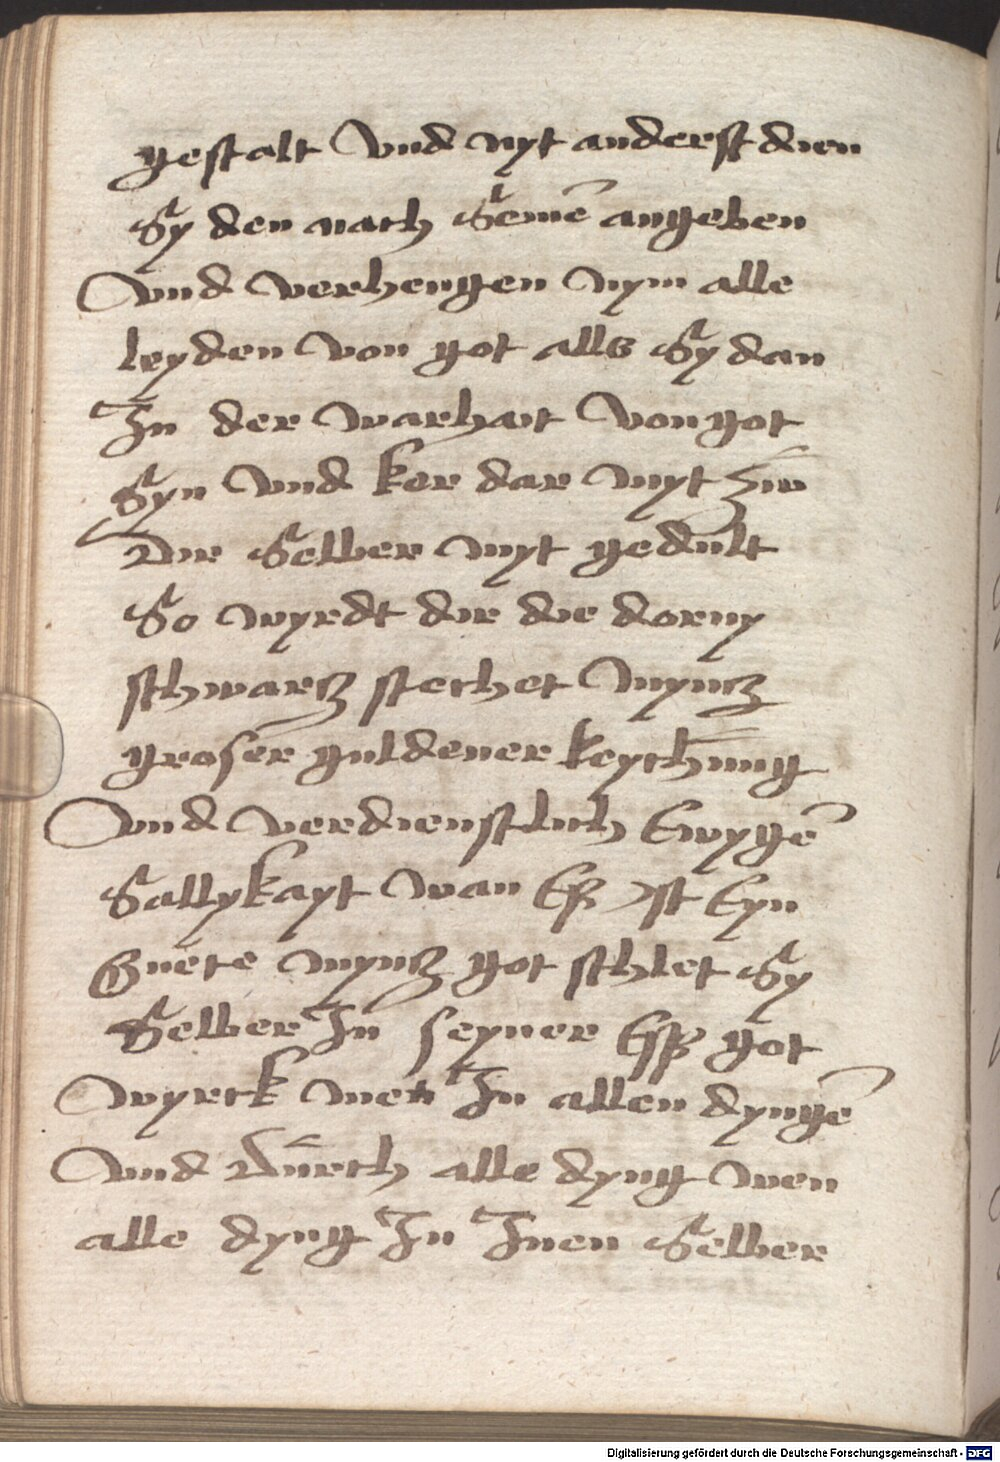 gestalt Vnd nyt anderst dien
Sy den nach Seinē angeben
Vnd verhengen Nym alle
leyden von got alls Sy dan
In der warhait Von got
Syn Vnd ker dar myt Zw
Dir Selber myt gedult
So wyrdt dir die dorny
schwarcz stechet Myncz
groser guldener
Vnd verdienstlich Ewygē
Sallykayt wan Eß Ist Eyn
Guete myncz got schlet Sy
Selber In seyner Eſß got
wyrck wen In allen dyngē
Vnd Durch alle dyng wen
alle dyng In Inen Selber
Digitalisierung gefördert durch die Deutsche Forschungsgemeinschaft - DFG